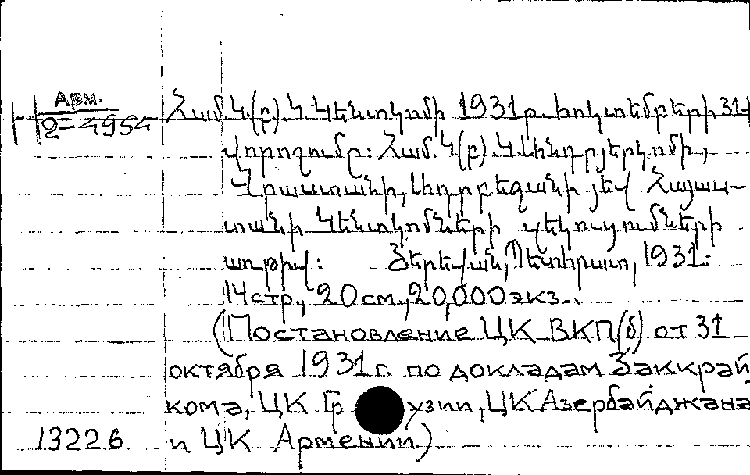 Арм.
2-4954
Համ Կ(բ)Կ Կենտկոմի 1931թ. հոկտեմբերի 31
վորոշումը: Համ. Կ(բ)Կ
Վրաստանի, Ադրբեջանի յեվ Հայաս-
տանի Կենտկոմների զեկուցումների
առթիվ: Յերեվան, Պետհրատ, 1931.
14 стр., 20 см., 20,000 экз.
(Постановление ЦК ВКП(б) от 31
октября 1931 г. по докладам Заккрай
кома, ЦК Грузии, ЦК Азербайджана
13226 и ЦК Армении.)